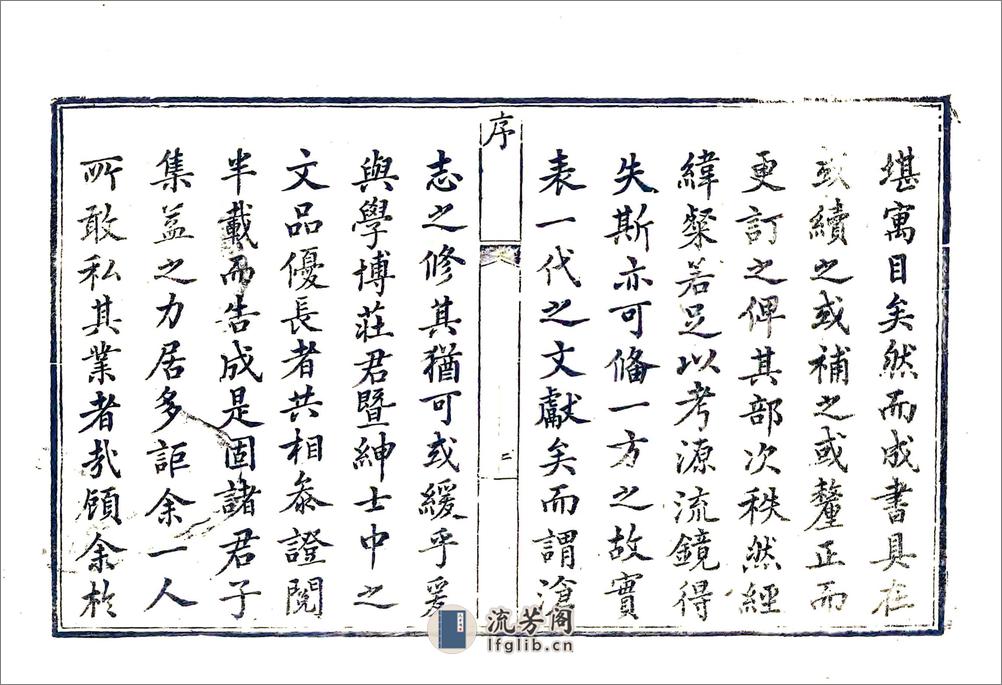 堪寓目矣然而成書具在
或續之或補之或釐正而
更訂之俾其部次秩然經
緯粲若足以考源流鏡得
失斯亦可備一方之故實
表一代之文獻矣而謂滄
序
二
志之修其猶可或緩乎爰
與學博莊君暨紳士中之
文品優長者共相叅證閱
半載而告成是固諸君子
集益之力居多詎余一人
所敢私其業者哉顧余於
流芳阁
lfglib.cn